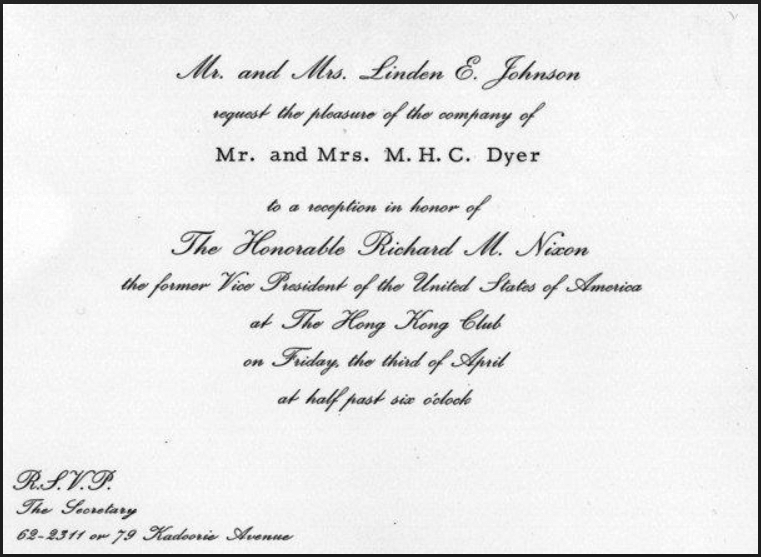 Mr. and Mrs. Linden E. Johnson
request the pleasure of the company of
Mr. and Mrs. M. H. C. Dyer
to a reception in honor of
The Honorable Richard M. Nixon
the former Vice President of the United States of America
at The Hong Kong Club
on Friday, the third of April
at half past six o'clock
R.S.V.P.
The Secretary
62-2311 or 79 Kadoorie Avenue